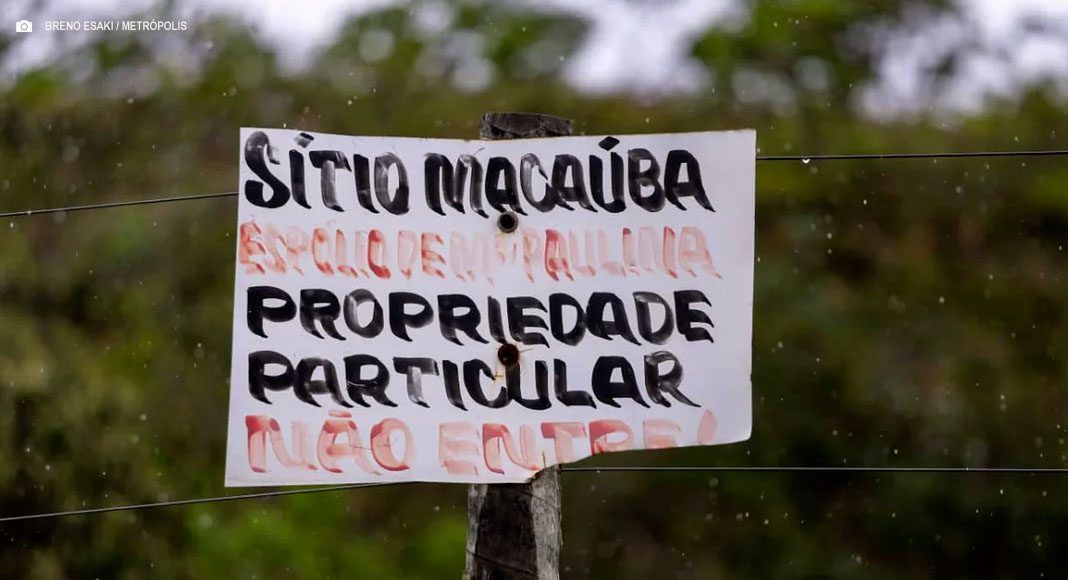 BRENO ESAKI / METRÓPOLIS
SÍTIO MACAÚBA
ESPÓLIO DE Mª PAULINA
PROPRIEDADE
PARTICULAR
NÃO ENTRE!